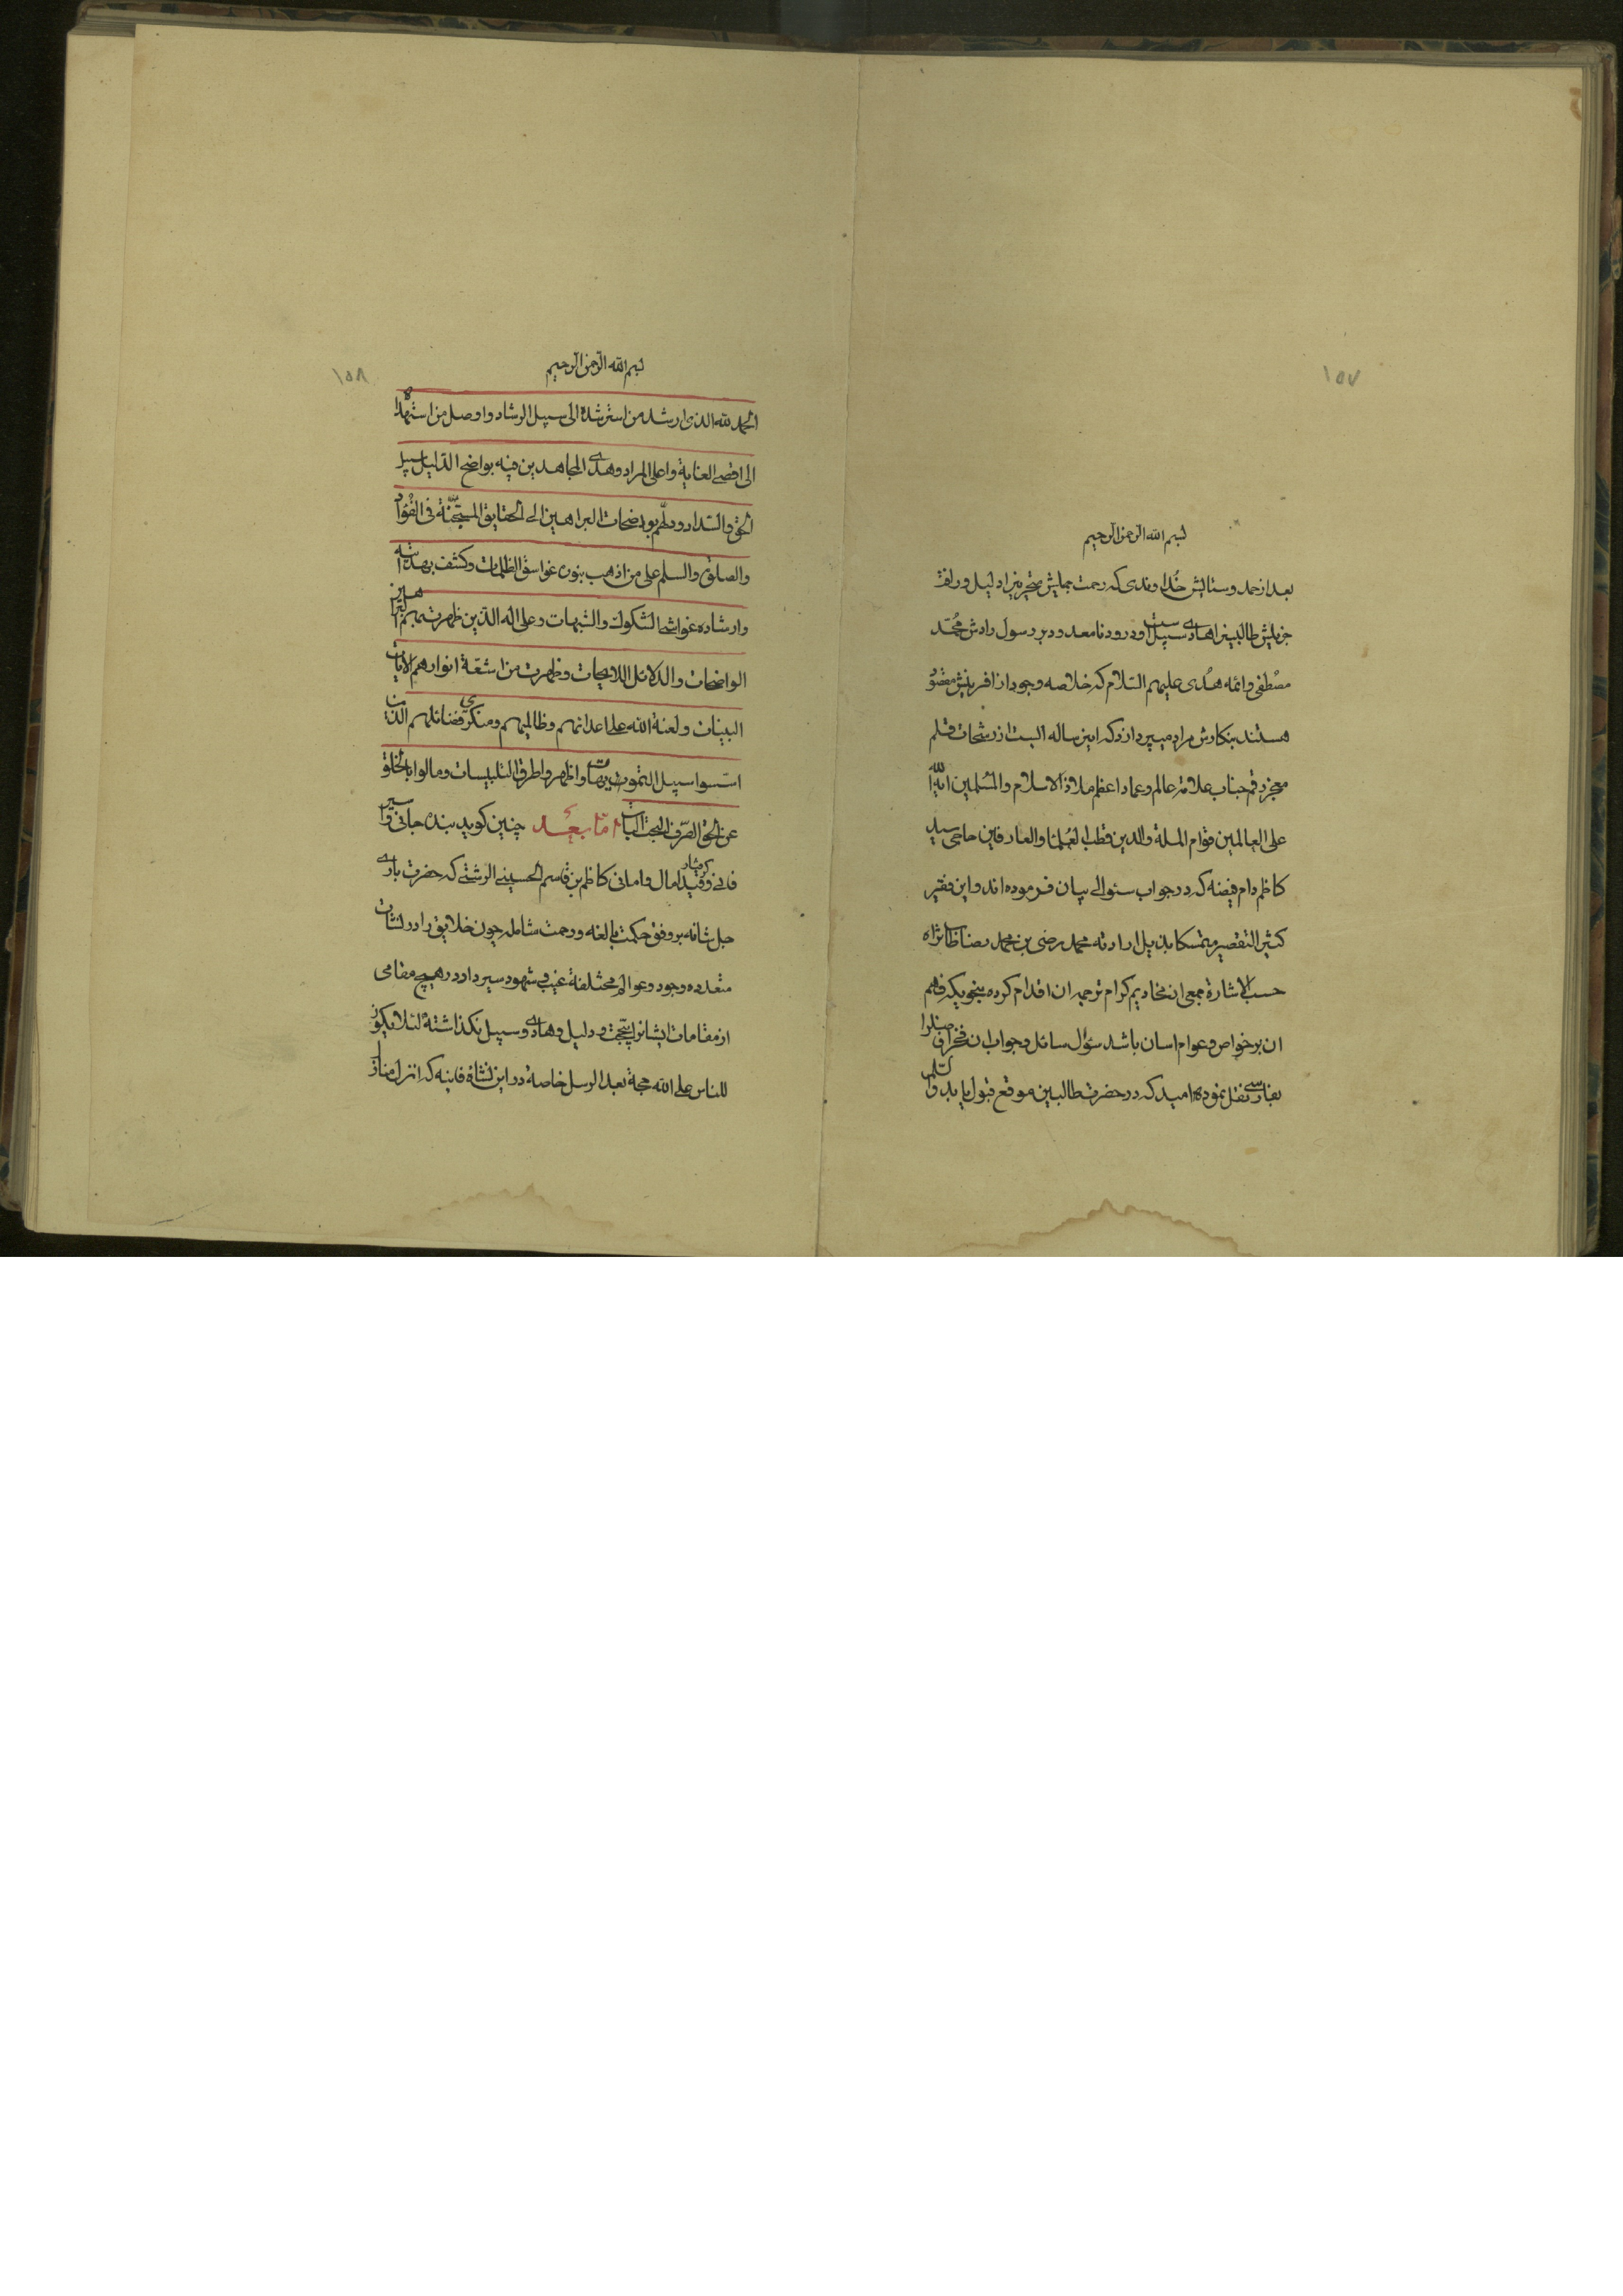 ١٥٧
بسم الله الرحمن الرحیم
بعد از حمد و ستایش خداوندی که رحمت بیمایش متحیرینرا دلیل و رافت
جزیلش طالبینرا هادی سبیل است و درود نامعدود بر رسول رادش محمّد
مصطفی و ائمه هدی علیهم السّلام که خلاصه وجود از افرینش مقصود
هستند بنکارش مراد میپردازد که این رساله ایست از رشحات قلم
معجز رقم جناب علامه عالم و عماد اعظم ملاذ الاسلام والمسلمین ایة الله
علی العالمین قوام الملة والدین قطب العلما والعارفین حاجی سید
کاظم دام فیضه که در جواب سئوالی بیان فرموده‌اند و این فقیر
کثیر التقصیر متمسکا بذیل ارادته محمد رضی بن محمد رضا طاب ثراه
حسب الاشارة جمعی از مخادیم کرام ترجمه ان اقدام کرده بنحویکه فهم
ان بر خواص و عوام اسان باشد سؤال سائل و جواب ان فخر افاضلرا
بفارسی نقل نموده امید که در حضرت طالبین موقع قبول یابد والسّلم
١٥٨
بسم الله الرحمن الرحیم
الحمد لله الذی ارشد من استرشده الی سبیل الرشاد و اوصل من استهداه
الی اقصی الغایة و اعلی المراد و هدی المجاهدین فیه بواضح الدّلیل سبیل
الحق والسّداد و دلّهم بواضحات البراهین الی الحقایق المستجنّة فی الفؤاد
والصلوة والسلم علی من اذهب بنوره غواسق الظلمات و کشف بهدایته
و ارشاده غواشی الشکوک والشبهات و علی اله الذین ظهرت بهم البراهین
الواضحات والدلائل اللایحات و ظهرت من اشعّة انوارهم الایات
البینات و لعنة الله علی اعدائهم و ظالمیهم و منکری فضائلهم الذین
اسّسوا سبیل التمویهات و اظهروا طرق التلبیسات و مالوا بالخلق
عن الحق الصّرف البحت البات امّا بعد چنین کوید بنده جانی و اسیر
فانی و قید کرفتار امال و امانی کاظم بن قاسم الحسینی الرشتی که حضرت باری
جل شانه بر وفق حکمت بالغه و رحمت شامله چون خلایق را در نشات
متعدده وجود و عوالم مختلفة غیب و شهود سیر داد در هیچ مقامی
از مقامات ایشانرا بیحجت و دلیل و هادی و سبیل نکذاشته لئلا یکون
للناس علی الله حجة بعد الرسل خاصة در این نشاة فانیه که انزل منازل